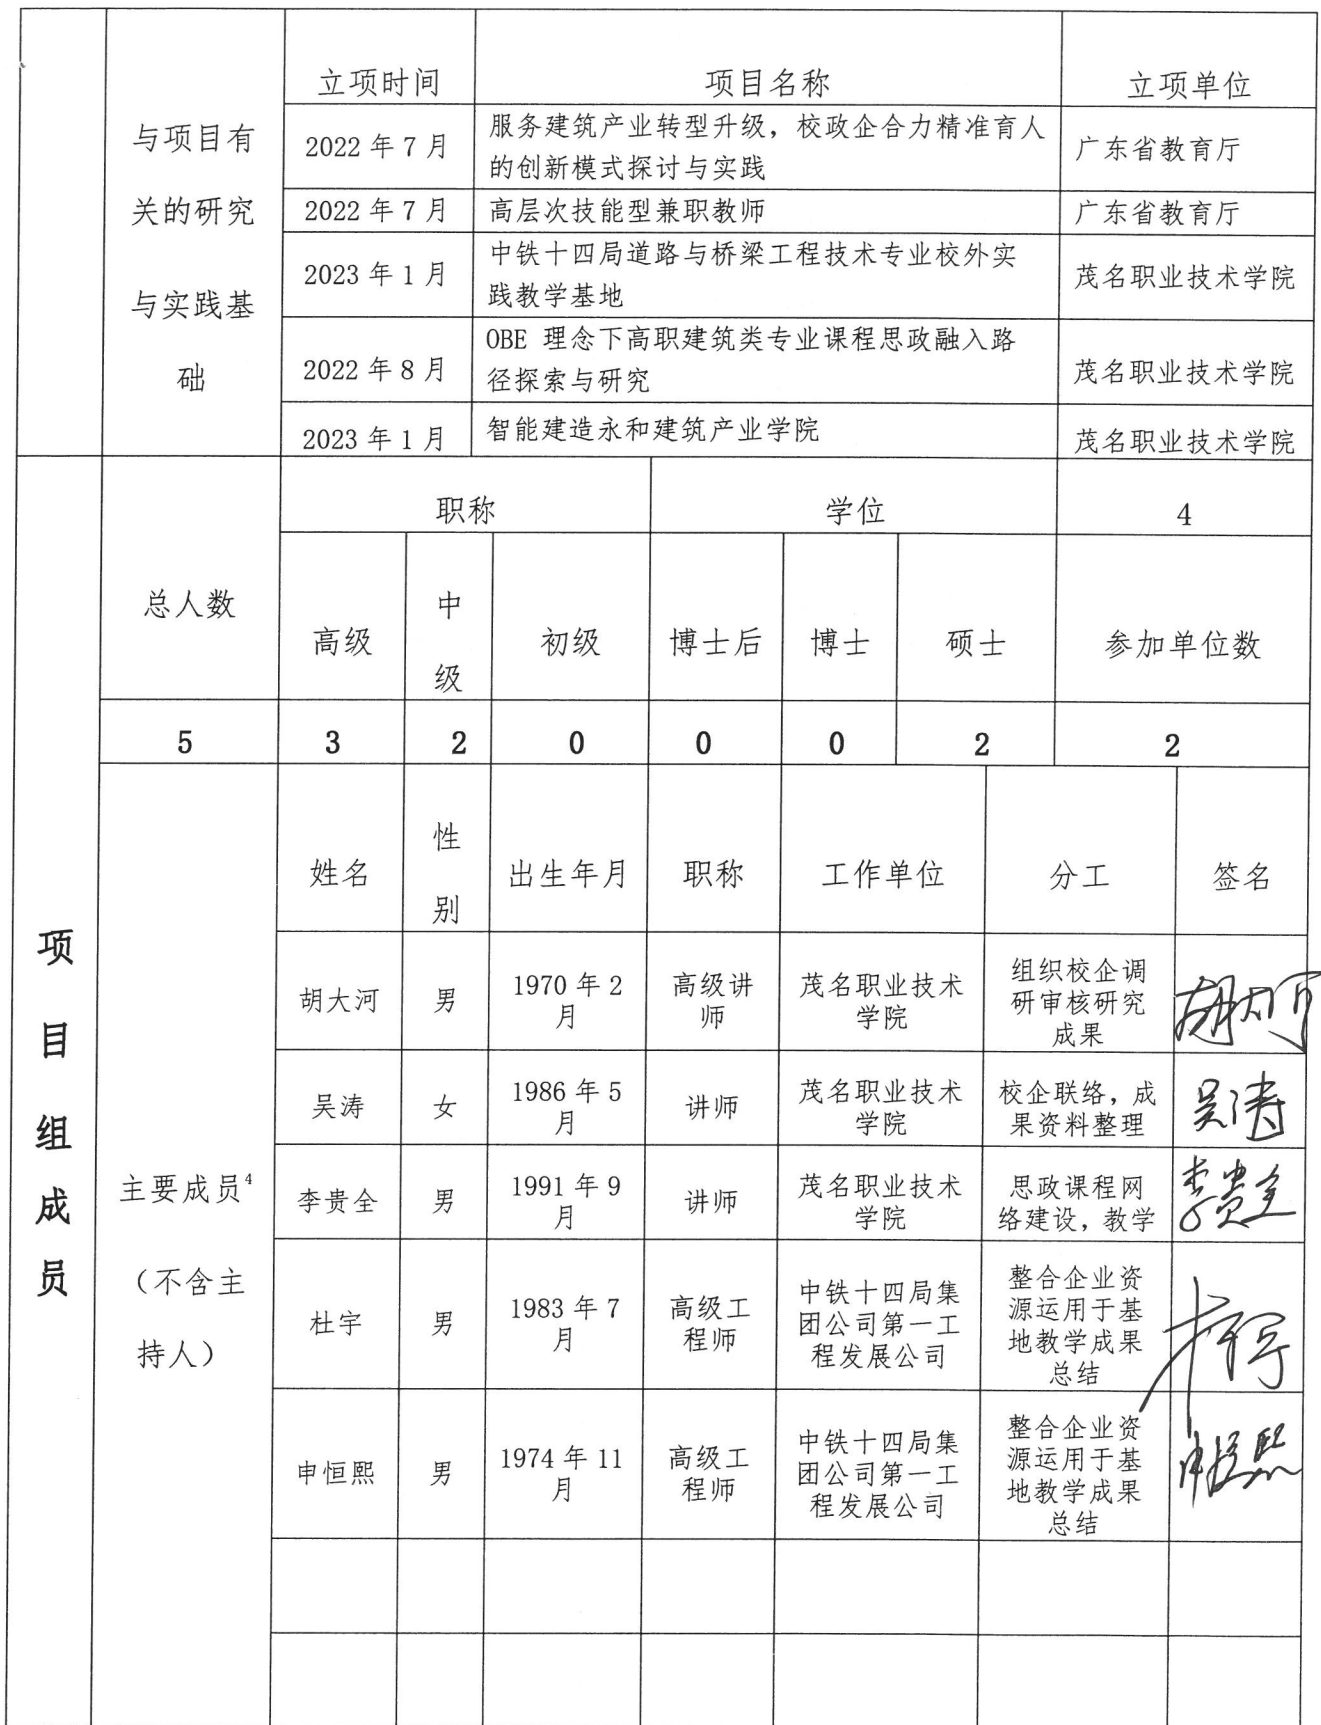 立项时间 项目名称 立项单位
与项目有
关的研究
与实践基
础
2022 年 7 月 服务建筑产业转型升级，校政企合力精准育人
的创新模式探讨与实践 广东省教育厅
2022 年 7 月 高层次技能型兼职教师 广东省教育厅
2023 年 1 月 中铁十四局道路与桥梁工程技术专业校外实
践教学基地 茂名职业技术学院
2022 年 8 月 OBE 理念下高职建筑类专业课程思政融入路
径探索与研究 茂名职业技术学院
2023 年 1 月 智能建造永和建筑产业学院 茂名职业技术学院
项
目
组
成
员
总人数 职称 学位 4
高级 中
级 初级 博士后 博士 硕士 参加单位数
5 3 2 0 0 0 2 2
主要成员4
（不含主
持人）
姓名 性
别 出生年月 职称 工作单位 分工 签名
胡大河 男 1970 年 2
月 高级讲
师 茂名职业技术
学院 组织校企调
研审核研究
成果 胡大河
吴涛 女 1986 年 5
月 讲师 茂名职业技术
学院 校企联络，成
果资料整理 吴涛
李贵全 男 1991 年 9
月 讲师 茂名职业技术
学院 思政课程网
络建设，教学 李贵全
杜宇 男 1983 年 7
月 高级工
程师 中铁十四局集
团公司第一工
程发展公司 整合企业资
源运用于基
地教学成果
总结 杜宇
申恒熙 男 1974 年 11
月 高级工
程师 中铁十四局集
团公司第一工
程发展公司 整合企业资
源运用于基
地教学成果
总结 申恒熙